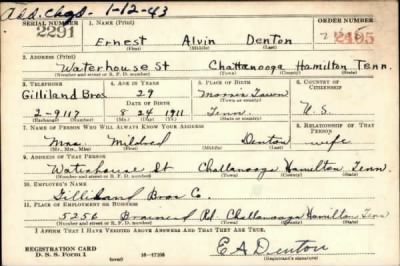 Add. Chgd. 1-12-43
SERIAL NUMBER 1. NAME (Print) ORDER NUMBER
2291 Ernest Alvin Denton 2495
(First) (Middle) (Last)
2. ADDRESS (Print)
Waterhouse St Chattanooga Hamilton Tenn.
(Number and street or R. F. D. number) (Town) (County) (State)
3. TELEPHONE 4. AGE IN YEARS 5. PLACE OF BIRTH 6. COUNTRY OF CITIZENSHIP
Gilliland Bros 29 Morris Town
DATE OF BIRTH (Town or county)
2-9117 8 24 1911 Tenn. U.S.
(Exchange) (Number) (Mo.) (Day) (Yr.) (State or country)
7. NAME OF PERSON WHO WILL ALWAYS KNOW YOUR ADDRESS 8. RELATIONSHIP OF THAT PERSON
Mrs. Mildred Denton wife
(Mr., Mrs., Miss) (First) (Middle) (Last)
9. ADDRESS OF THAT PERSON
Waterhouse St Chattanooga Hamilton Tenn.
(Number and street or R. F. D. number) (Town) (County) (State)
10. EMPLOYER'S NAME
Gilliland Bros Co.
11. PLACE OF EMPLOYMENT OR BUSINESS
5256 Brainerd Rd. Chattanooga Hamilton Tenn
(Number and street or R. F. D. number) (Town) (County) (State)
I AFFIRM THAT I HAVE VERIFIED ABOVE ANSWERS AND THAT THEY ARE TRUE.
REGISTRATION CARD
D. S. S. Form 1 16-17105 E A Denton
(over) (Registrant's signature)